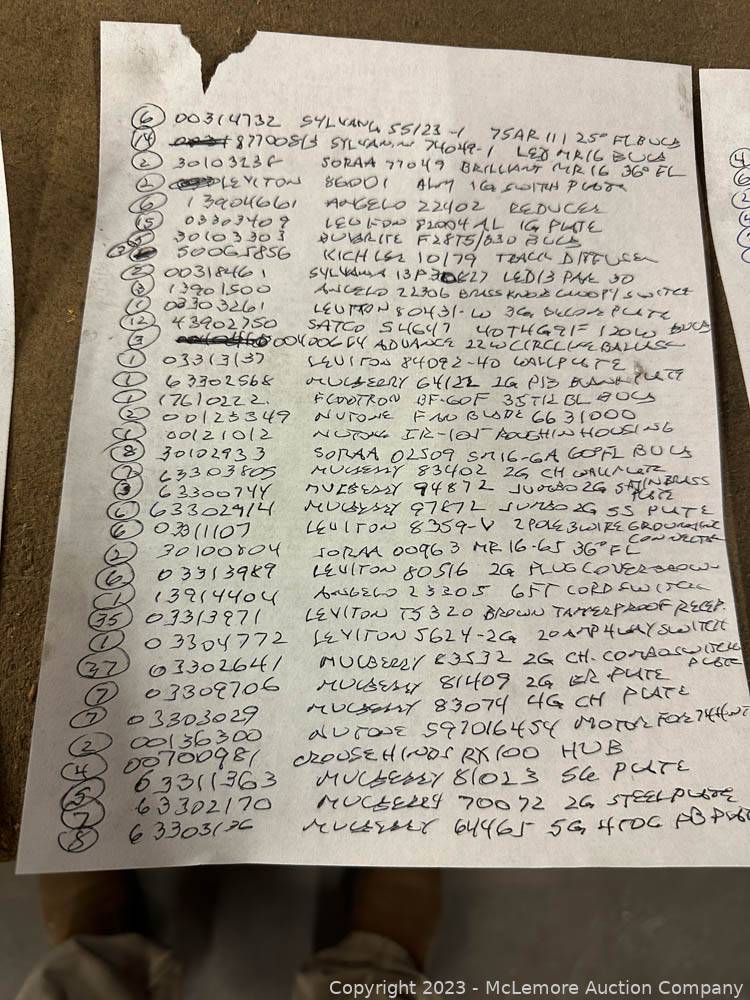 6 00314732 SYLVANIA 55123-1 75AR111 25° FL BULB
14 87700513 SYLVANIA 74049-1 LED MR16 BULB
2 30103238 SORAA 77049 BRILLIANT MR16 36° FL
2 LEVITON 86001 ALM 1G SWITCH PLATE
6 13904661 ANGELO 22402 REDUCER
15 03303409 LEVITON 82004 AL 1G PLATE
30103303 F28T5/830 BULB
50065856 KICHLER 10179 TRACK DIFFUSER
2 00318461 SYLVANIA LED13 PAR 30
3 13901500 ANGELO 22306 BRASS KNOB CANOPY SWITCH
1 03303261 LEVITON 80431-W 3G PLATE
12 43902750 SATCO S4647 40THG9/F 120V BULB
3 00400654 ADVANCE 22W CIRCLINE BALLAST
1 03313137 LEVITON 84092-40 WALLPLATE
1 63302568 MULBERRY 64122 2G BLANK PLATE
1 17610222 BF-60F 35T12 BL BULB
2 00123349 NUTONE FAN BLADE 6631000
00121012 NUTONE IR-105 ROUGH IN HOUSING
8 30102933 SORAA 02509 SM16-GA 60° FL BULB
63303805 MULBERRY 83402 2G CH WALLPLATE
63300744 MULBERRY 94872 JUMBO 2G SATIN BRASS PLATE
6 63302914 MULBERRY 97872 JUMBO 2G SS PLATE
6 03311107 LEVITON 8359-V 2POLE 3WIRE GROUNDING CONNECTOR
2 30100804 SORAA 00963 MR16-65 36° FL
6 03313989 LEVITON 80516 2G PLUG COVER BROWN
1 13914404 ANGELO 23305 6FT CORD SWITCH
35 03313971 LEVITON T5320 BROWN TAMPERPROOF RECEP.
1 03304772 LEVITON 5624-2G 20AMP 4WAY SWITCH
37 63302641 MULBERRY 83532 2G CH. COMBO SWITCH PLATE
7 03309706 MULBERRY 81409 2G BR PLATE
7 03303029 MULBERRY 83074 4G CH PLATE
2 00136300 NUTONE 597016454 MOTOR FOR 744NT
4 00700981 CROUSE HINDS RX100 HUB
5 63311363 MULBERRY 81023 5G PLATE
7 63302170 MULBERRY 70072 2G STEEL PLATE
8 63303126 MULBERRY 64465 5G 4TOG
Copyright 2023 - McLemore Auction Company